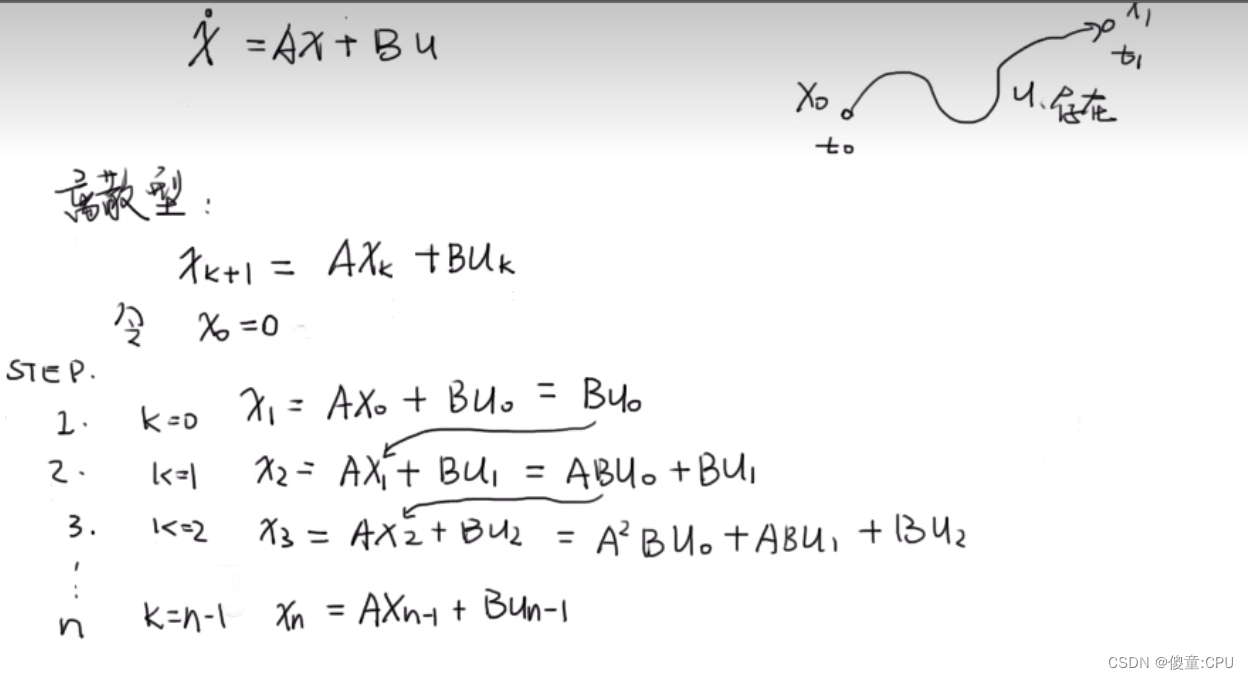 Ẋ = AX + BU
X₁
t₁
X₀
t₀
U 存在
离散型:
X_{k+1} = AX_k + BU_k
令 X₀ = 0
STEP.
1. k=0 X₁ = AX₀ + BU₀ = BU₀
2. k=1 X₂ = AX₁ + BU₁ = ABU₀ + BU₁
3. k=2 X₃ = AX₂ + BU₂ = A²BU₀ + ABU₁ + BU₂
⋮
n k=n-1 X_n = AX_{n-1} + BU_{n-1}
CSDN @傻童:CPU